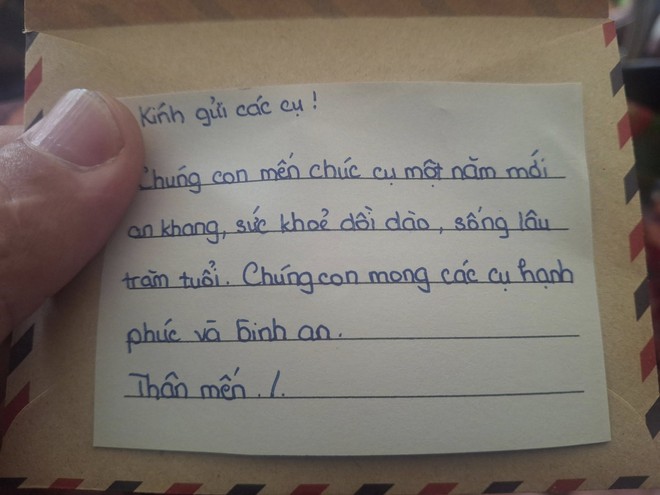 Kính gửi các cụ!
Chúng con mến chúc cụ một năm mới
an khang, sức khoẻ dồi dào, sống lâu
trăm tuổi. Chúng con mong các cụ hạnh
phúc và bình an.
Thân mến ./.